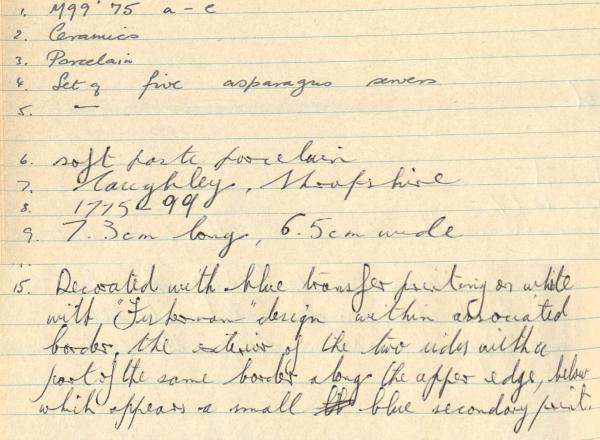 1. M99' 75 a - e
2. Ceramics
3. Porcelain
4. Set of five asparagus servers
5. —
6. soft paste porcelain
7. Caughley, Shropshire
8. 1775 - 99
9. 7.3cm long, 6.5cm wide
15. Decorated with blue transfer printing on white
with "Fisherman" design within associated
border, the exterior of the two sides with a
part of the same border along the upper edge, below
which appears a small blue secondary print.